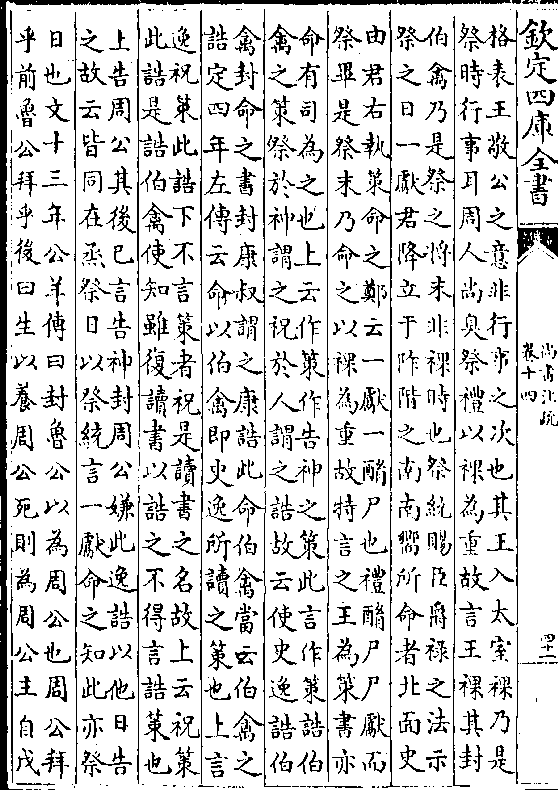 欽定四庫全書
尚書注疏
卷十四
四十一
格表王敬公之意非行事之次也其王入太室祼乃是
祭時行事耳周人尚臭祭禮以祼為重故言王祼其封
伯禽乃是祭之將末非祼時也祭統賜臣爵祿之法示
祭之日一獻君降立于阼階之南南嚮所命者北面史
由君右執策命之鄭云一獻一酳尸也禮酳尸尸獻而
祭畢是祭末乃命之以祼為重故特言之王為策書亦
命有司為之也上云作策作告神之策此言作策誥伯
禽之策祭於神謂之祝於人謂之誥故云使史逸誥伯
禽封命之書封康叔謂之康誥此命伯禽當云伯禽之
誥定四年左傳云命以伯禽即史逸所讀之策也上言
逸祝策此誥下不言策者祝是讀書之名故上云祝策
此誥是誥伯禽使知雖復讀書以誥之不得言誥策也
上告周公其後已言告神封周公嫌此逸誥以他日告
之故云皆同在烝祭日以祭統言一獻命之知此亦祭
日也文十三年公羊傳曰封魯公以為周公也周公拜
乎前魯公拜乎後曰生以養周公死則為周公主自戊